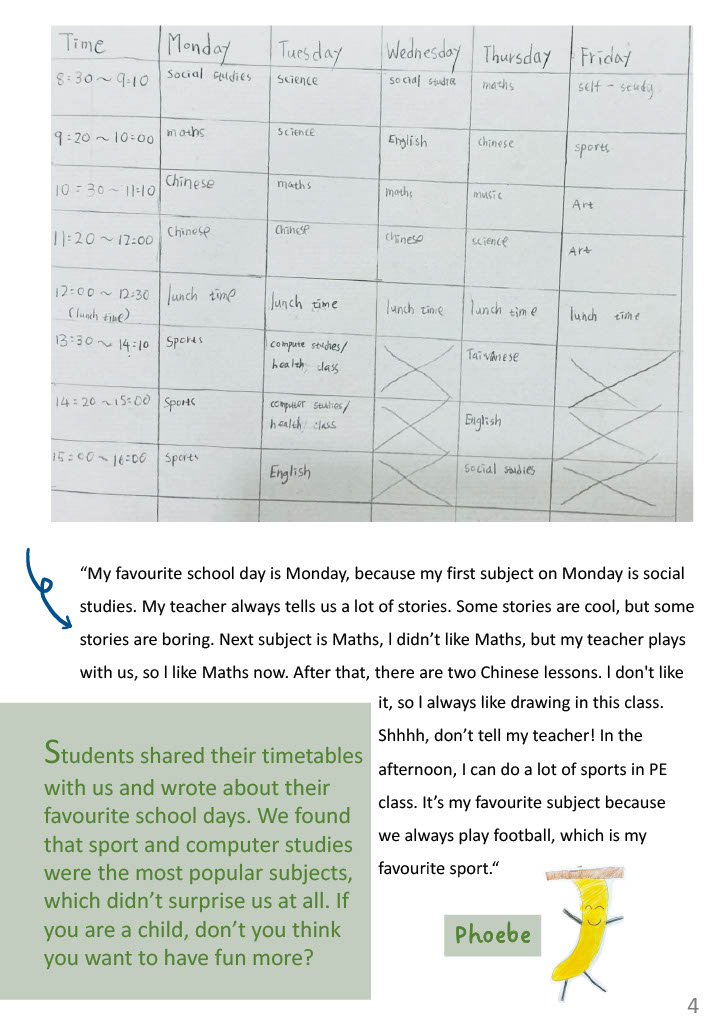 Time Monday Tuesday Wednesday Thursday Friday
8:30~9:10 social studies science social studies maths self-study
9:20~10:00 maths science English chinese sports
10:30~11:10 Chinese maths maths music Art
11:20~12:00 Chinese Chinese chinese science Art
12:00~12:30 lunch time lunch time lunch time lunch time lunch time
(lunch time)
13:30~14:10 Sports compute studies/ Taiwanese
health class
14:20~15:00 Sports computer studies/ English
health class
15:00~16:00 Sports English social studies
“My favourite school day is Monday, because my first subject on Monday is social
studies. My teacher always tells us a lot of stories. Some stories are cool, but some
stories are boring. Next subject is Maths, l didn’t like Maths, but my teacher plays
with us, so l like Maths now. After that, there are two Chinese lessons. l don't like
it, so l always like drawing in this class.
Shhhh, don’t tell my teacher! In the
afternoon, I can do a lot of sports in PE
class. It’s my favourite subject because
we always play football, which is my
favourite sport.“
Students shared their timetables
with us and wrote about their
favourite school days. We found
that sport and computer studies
were the most popular subjects,
which didn’t surprise us at all. If
you are a child, don’t you think
you want to have fun more?
Phoebe
4